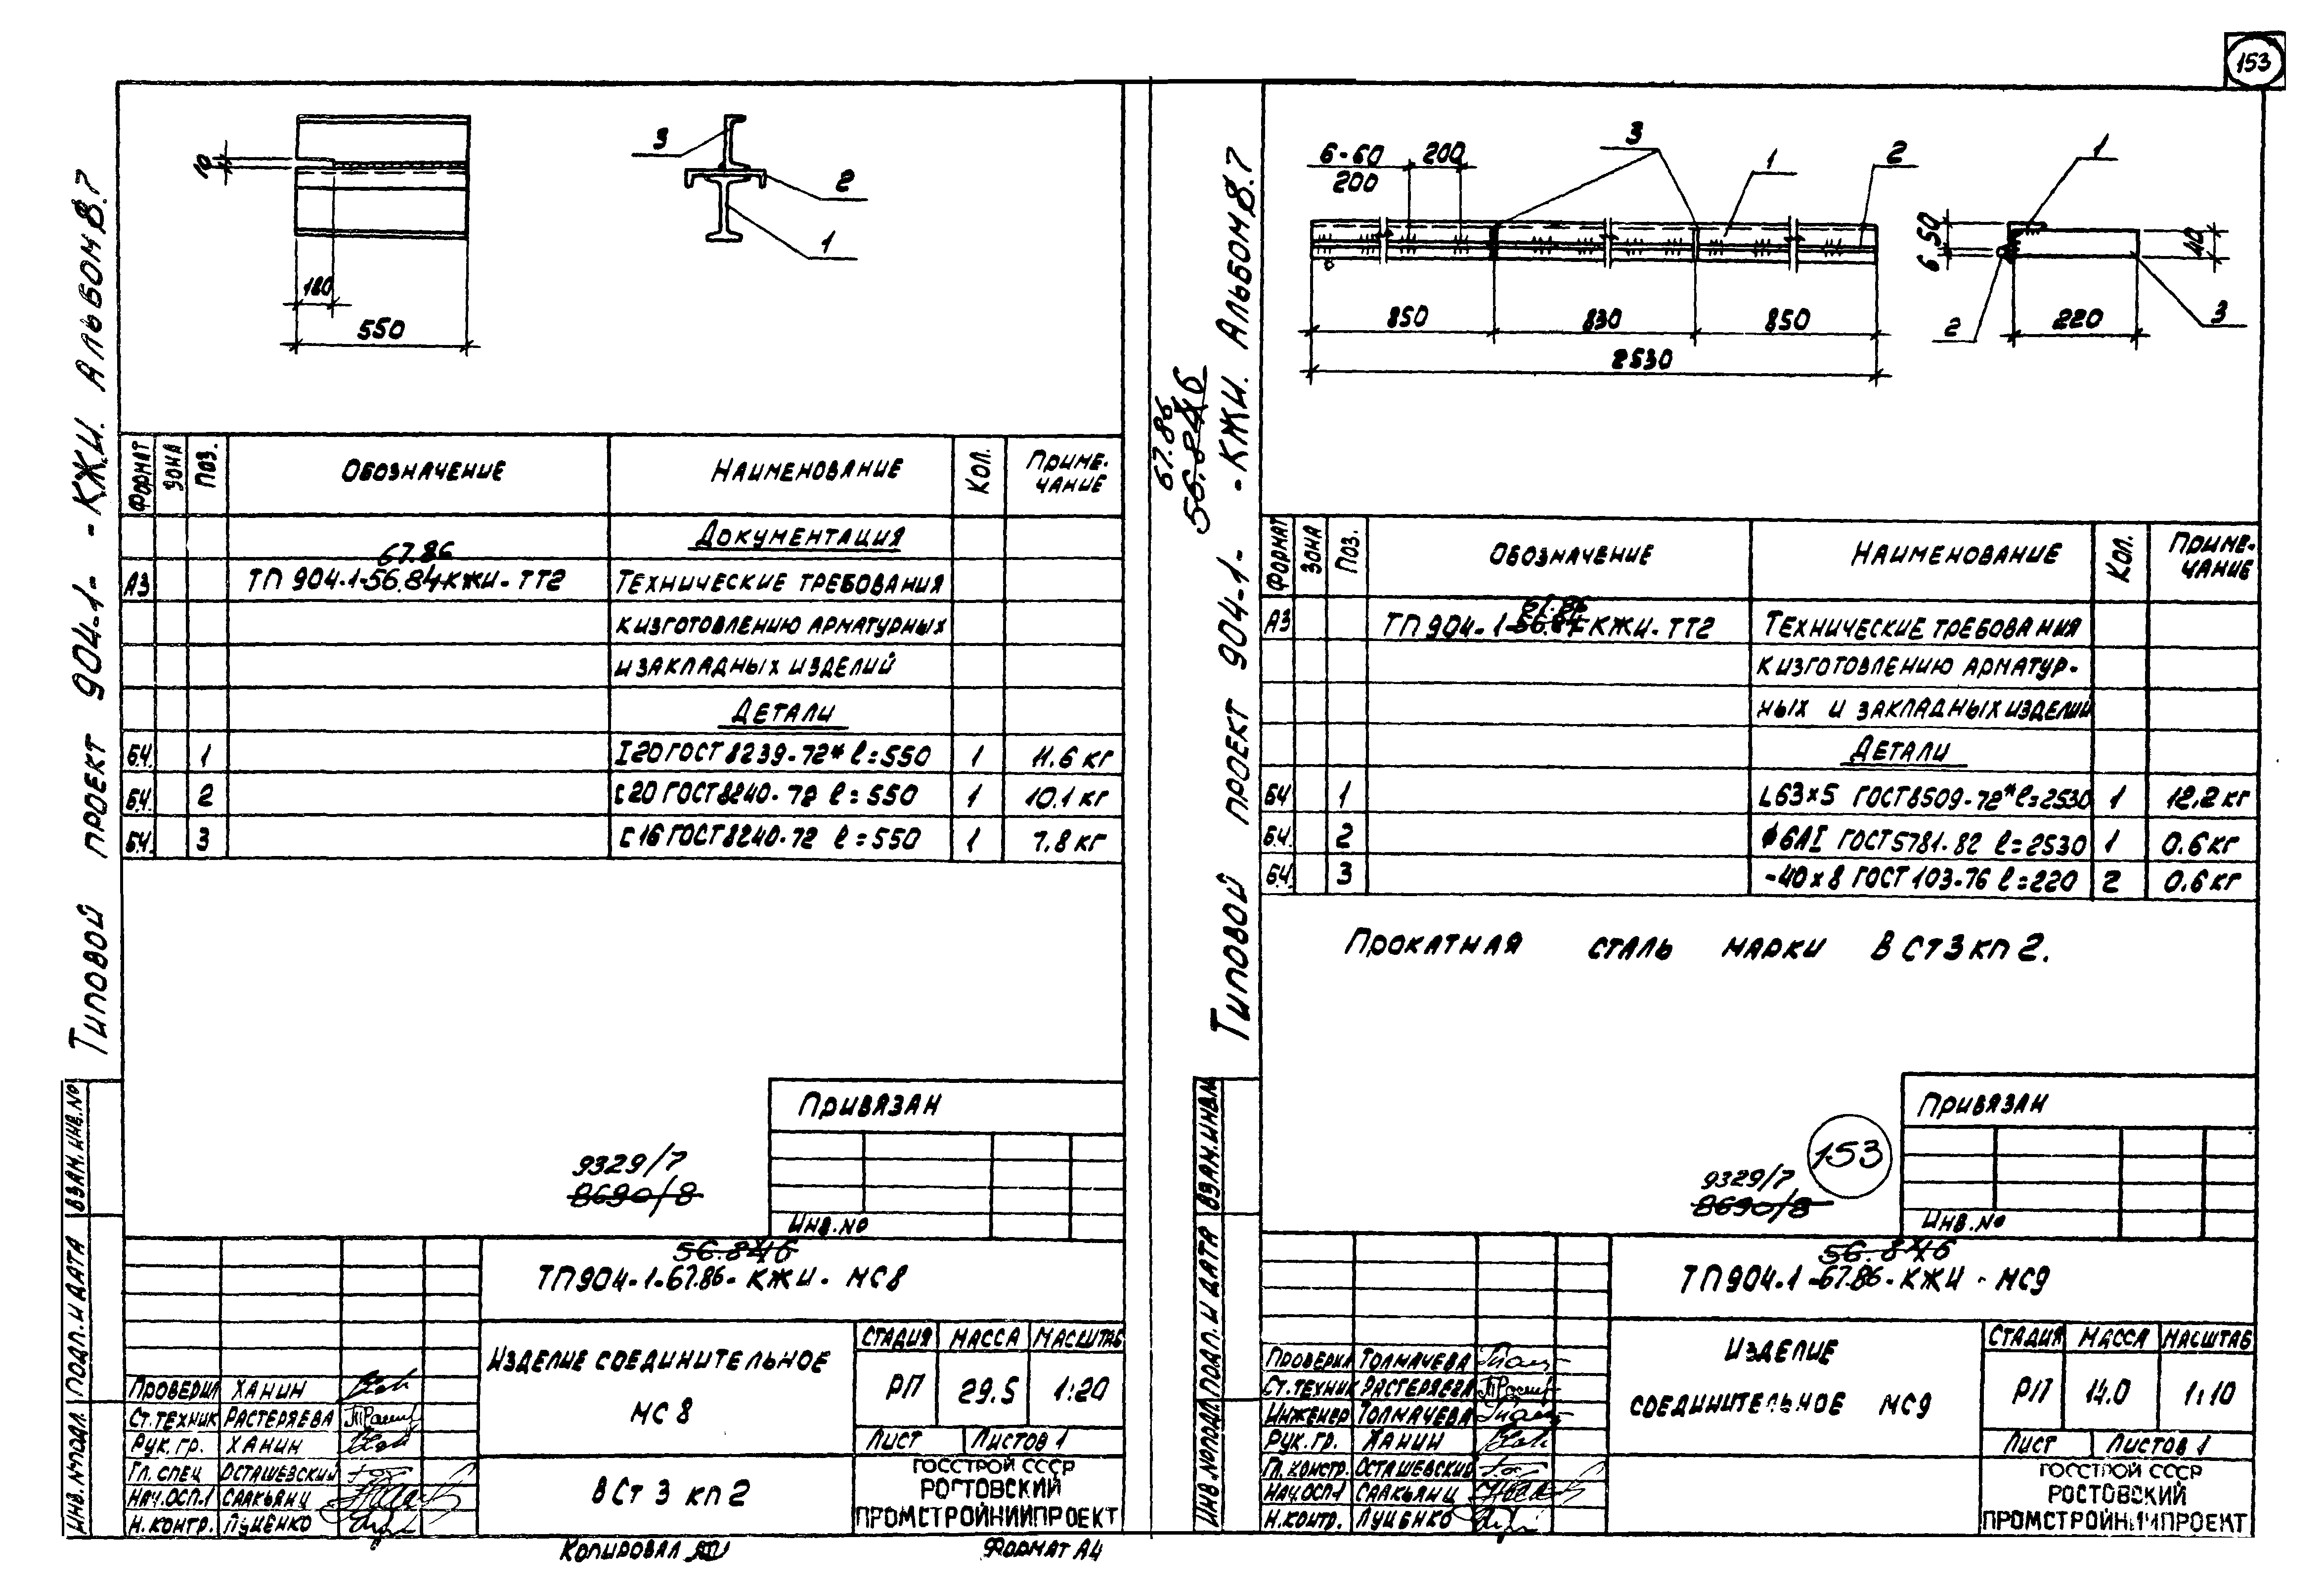 153
Типовой проект 904-1- -КЖИ. Альбом 8.7
10
180
550
3
2
1
Формат Зона Поз. Обозначение Наименование Кол. Приме-
чание
Документация
67.86
А3 ТП 904-1-56.84 КЖИ-ТТ2 Технические требования
к изготовлению арматурных
и закладных изделий
Детали
Б.Ч. 1 I 20 ГОСТ 8239-72* ℓ=550 1 11.6 кг
Б.Ч. 2 [ 20 ГОСТ 8240-72 ℓ=550 1 10.1 кг
Б.Ч. 3 [ 16 ГОСТ 8240-72 ℓ=550 1 7.8 кг
Привязан
9329/7
8690/8
Инв.№
Взам.инв.№
Подп. и дата
Инв.№подл.
56.84
ТП904-1-67.86-КЖИ-МС8
Изделие соединительное
МС 8
Стадия Масса Масштаб
РП 29.5 1:20
Лист Листов 1
ВСт 3 кп 2
Госстрой СССР
Ростовский
Промстройниипроект
Проверил Ханин
Ст.техник Растеряева
Рук.гр. Ханин
Гл.спец Осташевский
Нач.ОСП-1 Саакьянц
Н.контр. Луценко
Копировал
Формат А4
67.86
56.84
Типовой проект 904-1- -КЖИ. Альбом 8.7
6-60 200
200
3 1 2
850 830 850
2530
1
50
6
40
2 220 3
Формат Зона Поз. Обозначение Наименование Кол. Приме-
чание
67.86
А3 ТП 904-1-56.84 КЖИ-ТТ2 Технические требования
к изготовлению арматур-
ных и закладных изделий
Детали
Б.Ч. 1 L 63×5 ГОСТ 8509-72* ℓ=2530 1 12.2 кг
Б.Ч. 2 ϕ6АI ГОСТ 5781-82 ℓ=2530 1 0.6 кг
Б.Ч. 3 -40×8 ГОСТ 103-76 ℓ=220 2 0.6 кг
Прокатная сталь марки ВСт3кп2.
Привязан
153
9329/7
8690/8
Инв.№
Взам.инв.№
Подп. и дата
Инв.№подл.
56.84
ТП904-1-67.86-КЖИ-МС9
Изделие
соединительное МС9
Стадия Масса Масштаб
РП 14.0 1:10
Лист Листов 1
Госстрой СССР
Ростовский
Промстройниипроект
Проверил Толмачева
Ст.техник Растеряева
Инженер Толмачева
Рук.гр. Ханин
Гл.констр. Осташевский
Нач.ОСП-1 Саакьянц
Н.контр. Луценко